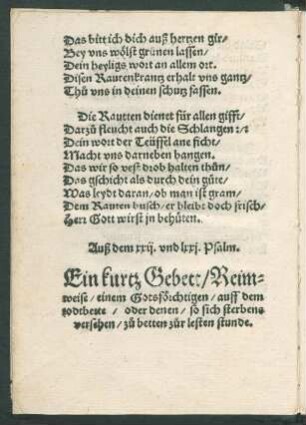 Das bitt ich dich auß hertzen gir/
Bey vns wölst grünen lassen/
Dein heyligs wort an allem ort.
Disen Rautenkrantz erhalt vns gantz/
Thů vns in deinen schutz fassen.
Die Rautten dienet für allen gifft/
Darzů fleucht auch die Schlangen :/:
Dein wort der Teüffel ane ficht/
Macht vns darneben bangen.
Das wir so vest drob halten thůn/
Das gschicht als durch dein güte/
Was leydt daran/ ob man ist gram/
Dem Rauten busch/ er bleibt doch frisch/
Herr Gott wirst jn behüten.
Auß dem xxij. vnd lxxj. Psalm.
Ein kurtz Gebett/ Reim-
weise/ einem Gotsförchtigen/ auff dem
todtbete/ oder denen/ so sich sterbens
versehen/ zů betten zůr lesten stunde.